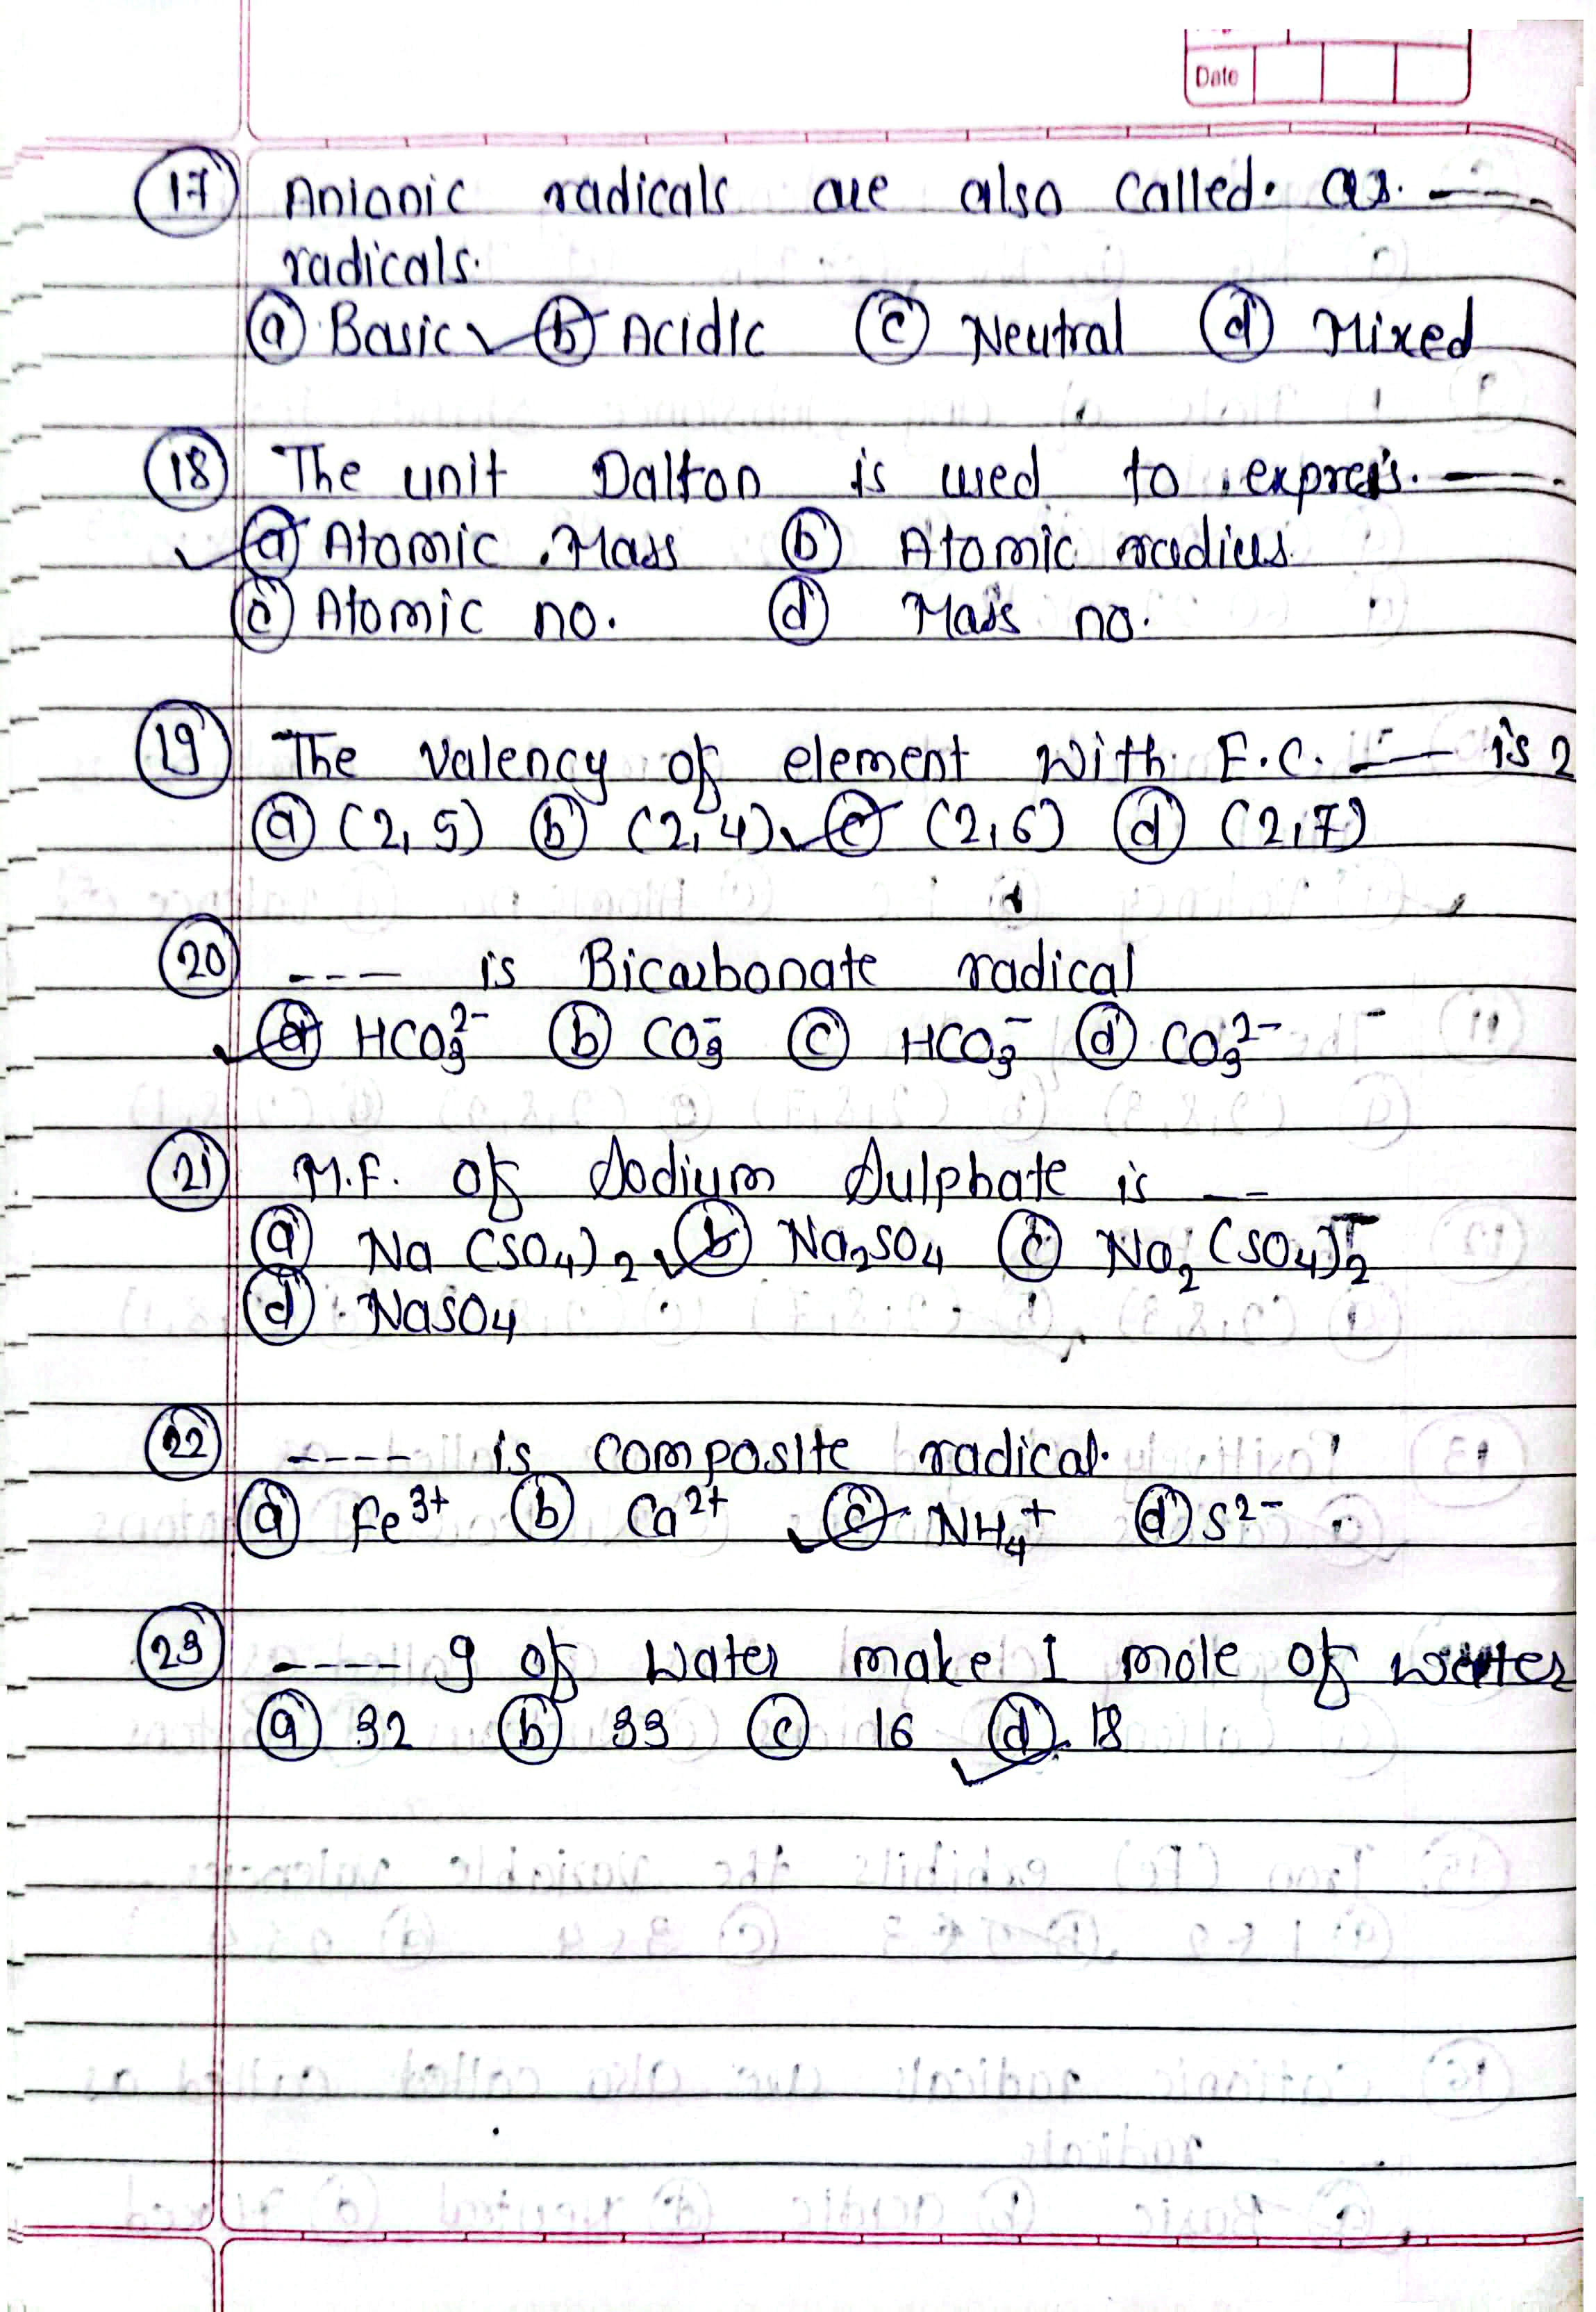 Date
17 Anionic radicals are also called as ----
radicals.
a Basic ✓ b Acidic c Neutral d Mixed
18 The unit Dalton is used to express. ----.
✓ a Atomic Mass b Atomic radius.
c Atomic no. d Mass no.
19 The valency of element with E.C. --- is 2
a (2,5) b (2,4) ✓ c (2,6) d (2,7)
20 --- is Bicarbonate radical
✓ a HCO₃²⁻ b CO₃⁻ c HCO₃⁻ d CO₃²⁻
21 M.F. of Sodium Sulphate is --
a Na (SO₄)₂ ✓ b Na₂SO₄ c Na₂(SO₄)₂
d NaSO₄
22 ---- is composite radical.
a Fe³⁺ b Ca²⁺ ✓ c NH₄⁺ d S²⁻
23 ---- g of water make 1 mole of water
a 32 b 33 c 16 ✓ d 18